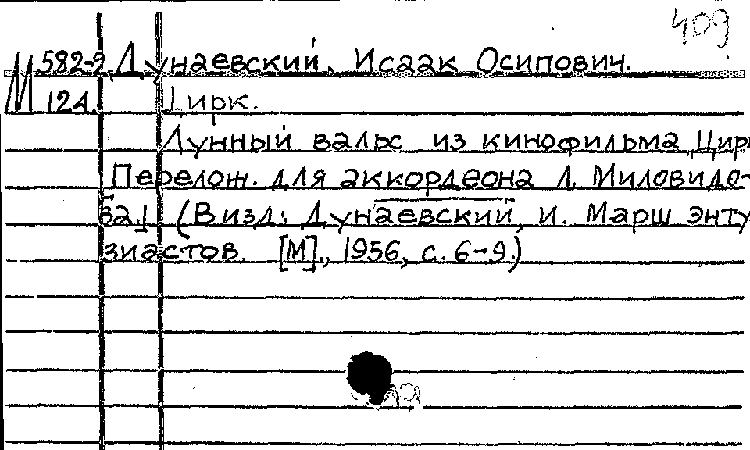 409
М 582-2 Дунаевский, Исаак Осипович.
124. Цирк.
Лунный вальс из кинофильма Цирк
Перелож. для аккордеона Л. Миловидо-
ва.] (В изд.: Дунаевский, И. Марш энту
зиастов. [М]., 1956, с. 6-9.)